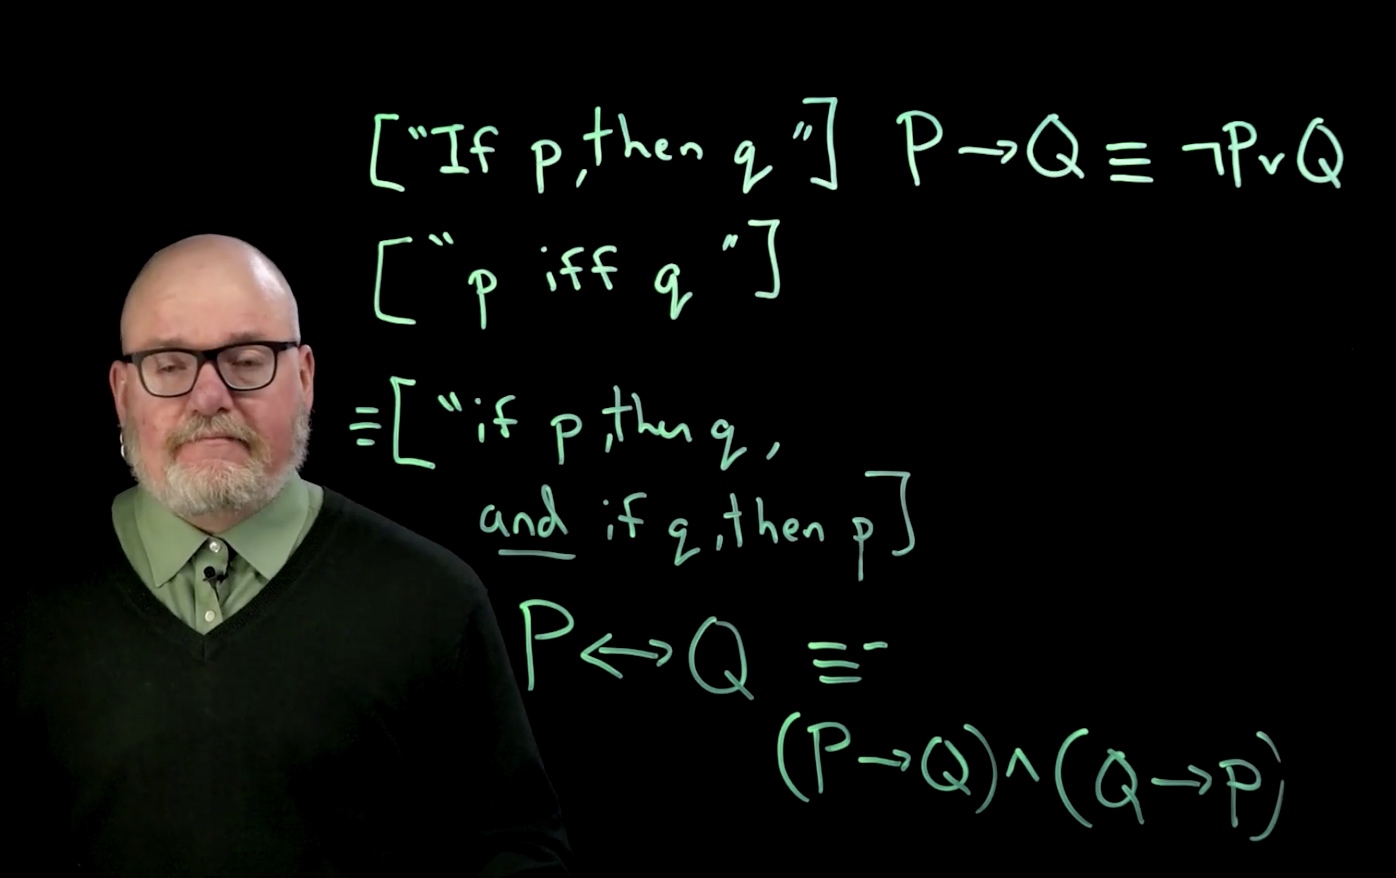 ["If p, then q"] P → Q ≡ ¬P ∨ Q
["p iff q"]
≡ ["if p, then q,
and if q, then p]
P ↔ Q ≡ -
(P → Q) ∧ (Q → P)